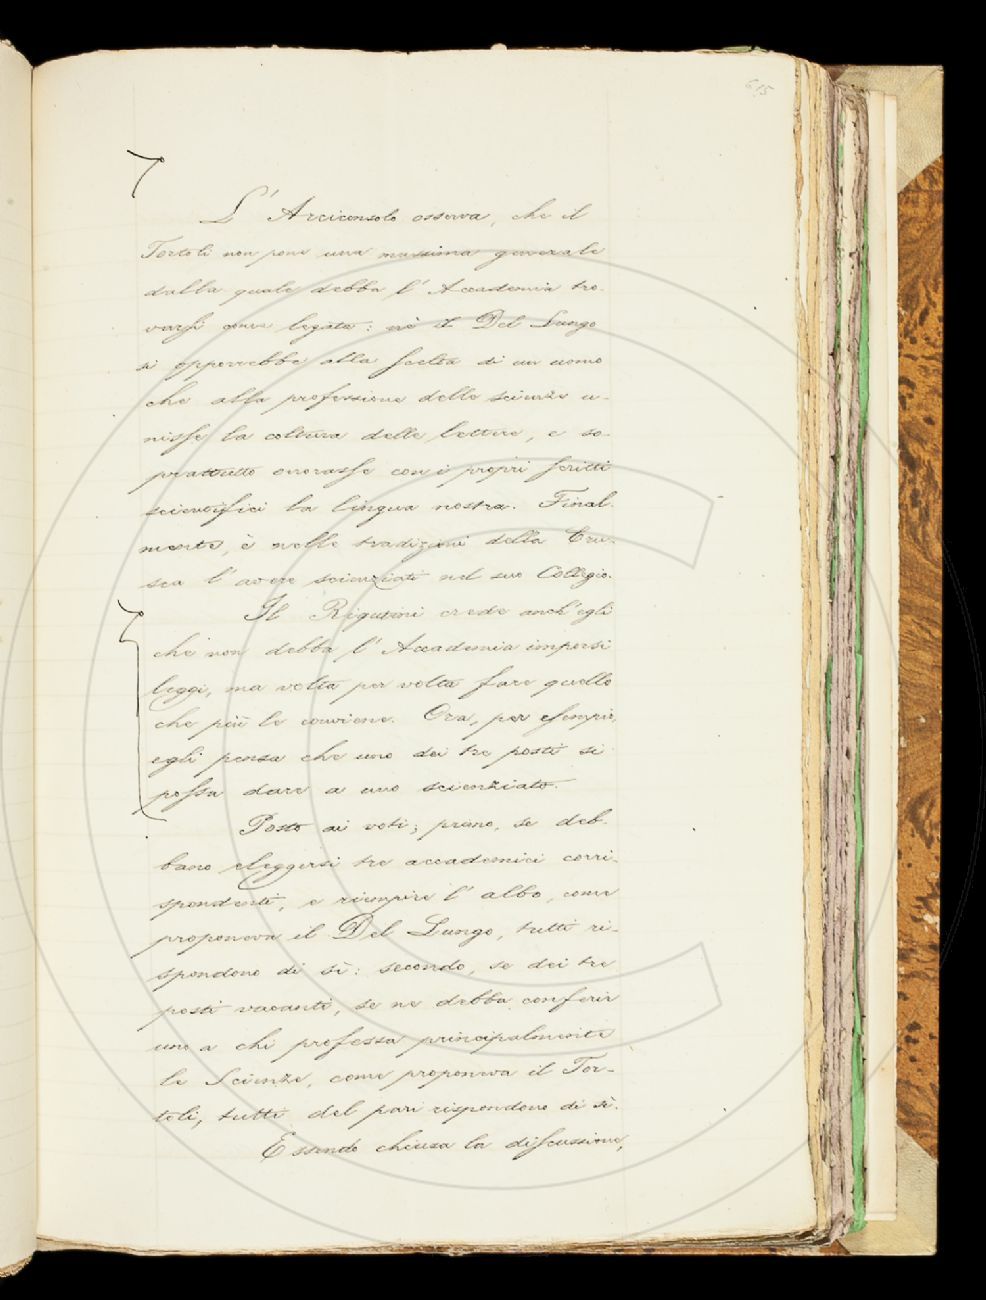 615
L' Arciconsolo osserva, che il
Tortoli non pone una massima generale
dalla quale debba l' Accademia tro-
varsi come legata: nè il Del Lungo
si opporrebbe alla scelta di un uomo
che alla professione delle scienze u-
nisse la coltura delle lettere, e so-
prattutto onorasse con i propri scritti
scientifici la lingua nostra. Final-
mente, è nelle tradizioni della Cru-
sca l' avere scienziati nel suo Collegio.
Il Rigutini crede anch' egli
che non debba l' Accademia imporsi
leggi, ma volta per volta fare quello
che più le conviene. Ora, per esempio,
egli pensa che uno dei tre posti si
possa dare a uno scienziato.
Posto ai voti; primo, se deb-
bano eleggersi tre accademici corri-
spondenti, e riempire l' albo, come
proponeva il Del Lungo, tutti ri-
spondono di sì: secondo, se dei tre
posti vacanti, se ne debba conferir
uno a chi professa principalmente
le Scienze, come proponeva il Tor-
toli, tutti del pari rispondono di sì.
Essendo chiusa la discussione,